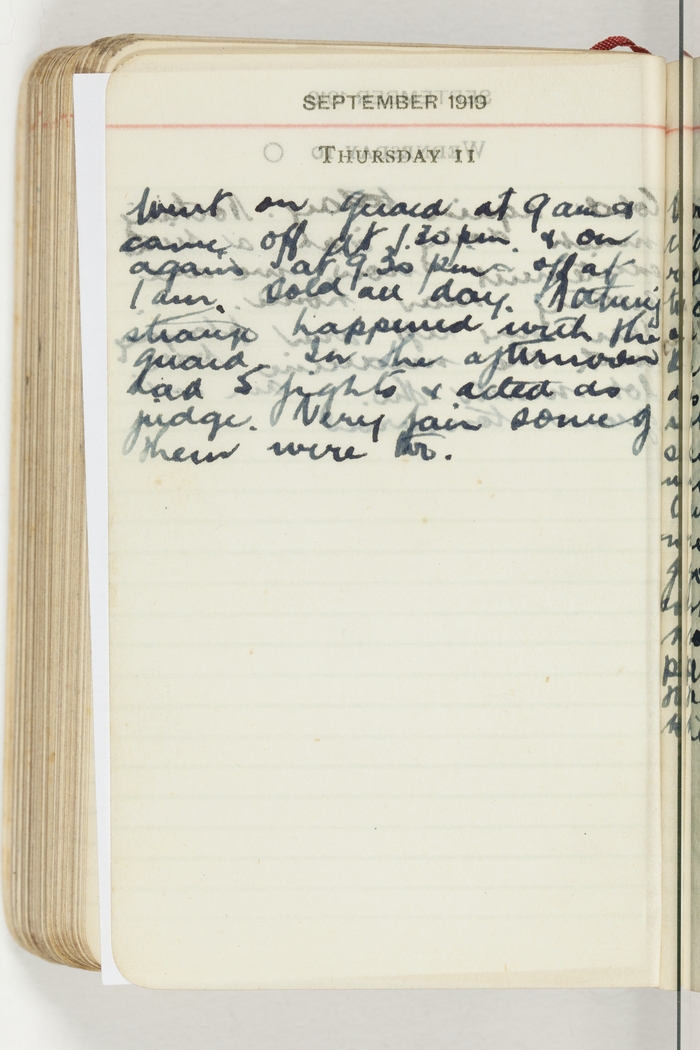 SEPTEMBER 1919
THURSDAY 11
Went on guard at 9 am &
came off at 1.30 pm. & on
again at 9.30 pm off at
1 am. Sold all day. Nothing
strange happened with the
guard. In the afternoon
had 5 fights & acted as
judge. Very fair some of
them were too.